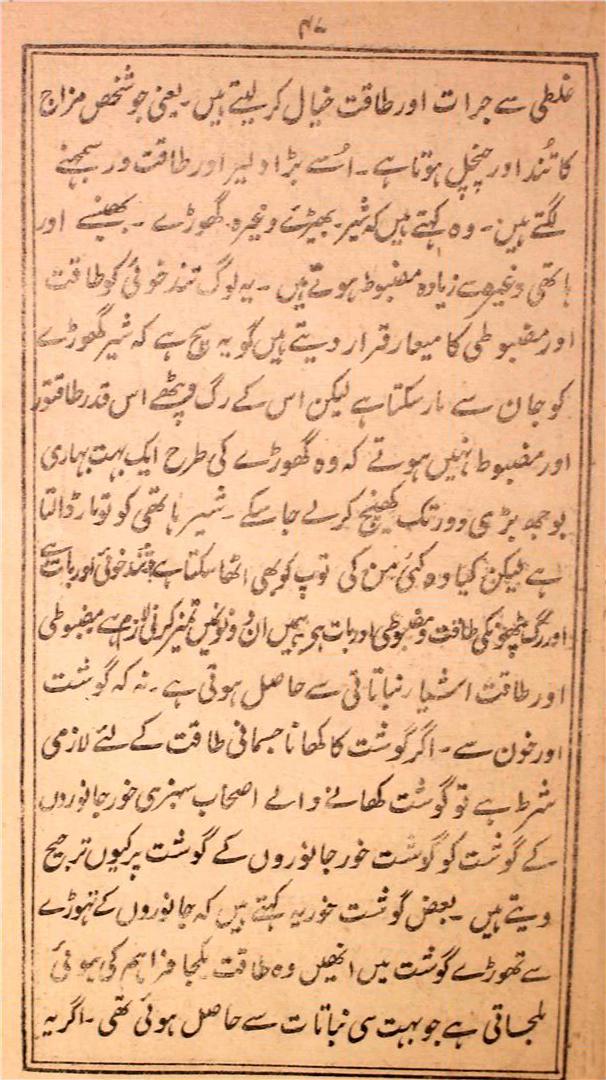 ۴۷
غلطی سے جرات اور طاقت خیال کر لیتے ہیں۔ یعنی جو شخص مزاج
کا تُند اور چنچل ہوتا ہے۔ اُسے بڑا دلیر اور طاقت ور سمجہنے
لگتے ہیں۔ وہ کہتے ہیں کہ شیر۔ بھیڑئے وغیرہ۔ گھوڑے۔ بھینسے اور
ہاتھی وغیرہ سے زیادہ مضبوط ہوتے ہیں۔ یہ لوگ تند خوئی کو طاقت
اور مضبوطی کا معیار قرار دیتے ہیں گو یہ سچ ہے کہ شیر گھوڑے
کو جان سے مار سکتا ہے لیکن اس کے رگ و پٹھے اس قدر طاقتور
اور مضبوط نہیں ہوتے کہ وہ گھوڑے کی طرح ایک بہت بہاری
بوجھ بڑی دور تک کھینچ کر لے جا سکے۔ شیر ہاتھی کو تو مار ڈالتا
ہے لیکن کیا وہ کئی من کی توپ کو بھی اٹھا سکتا ہے تُند خوئی اور بات ہے
اور رگ پٹھونکی طاقت و مضبوطی اور بات ہے ہمیں ان دونوں میں تمیز کرنی لازم ہے مضبوطی
اور طاقت اشیاء نباتاتی سے حاصل ہوتی ہے۔ نہ کہ گوشت
اور خون سے۔ اگر گوشت کا کھانا جسمانی طاقت کے لئے لازمی
شرط ہے تو گوشت کھانے والے اصحاب سبزی خور جانوروں
کے گوشت کو گوشت خور جانوروں کے گوشت پر کیوں ترجیح
دیتے ہیں۔ بعض گوشت خور یہ کہتے ہیں کہ جانوروں کے تہوڑے
سے تھوڑے گوشت میں انھیں وہ طاقت یکجا فراہم کی ہوئی
ملجاتی ہے جو بہت سی نباتات سے حاصل ہوئی تھی۔ اگر یہ